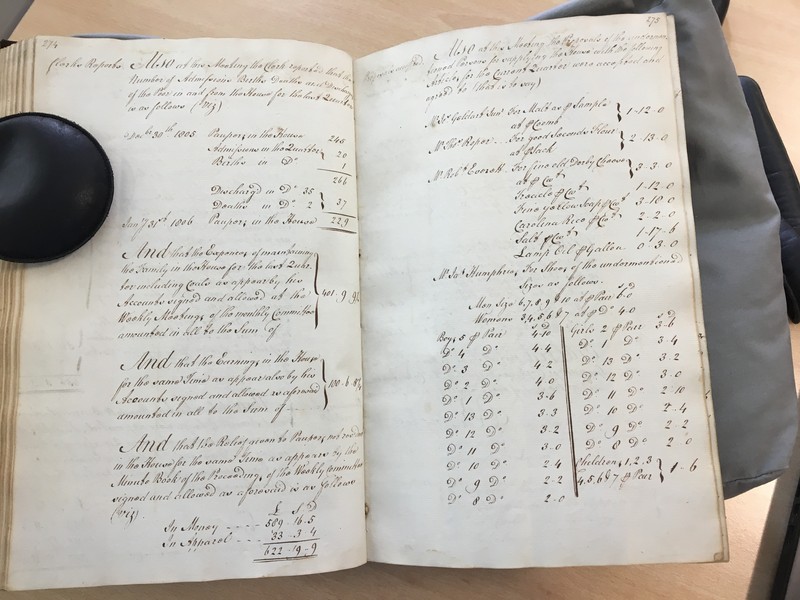 274
Clerks Reports Also at this Meeting the Clerk reported that the
Number of Admissions Births Deaths and Discharges
of the Poor in and from the House for the last Quarter
is as follows (viz)
30th 1805 Paupers in the House 245
Admissions in the Quarter 20
Births in Do 1
266
Discharged in Do 35
Deaths in Do 2 37
Jany 31st 1806 Paupers in the House 229
And that the Expences of maintaining
the Family in the House for the last Quar
ter including Coals as appear by his
Accounts signed and allowed at the
Weekly Meetings of the monthly Committee
amounted in all to the Sum of
401-9-9
And that the Earnings in the House
for the same Time as appear also by his
Accounts signed and allowed as aforesaid
amounted in all to the Sum of
100-6-8½
And that the Relief given to Paupers not
in the House for the same Time as appears by the
Minute Book of the Proceedings of the Weekly Committee
signed and allowed as aforesaid is as follows
(viz)
£ S D
In Money ---- 589-16-5
In Apparel ---- 33-3-4
622-19-9
275
Also at this Meeting the Proposals of the
Persons for supplying the House with the following
Articles for the Current Quarter were accepted and
agreed to (that is to say)
For Malt as ⅌ Sample
at ⅌ Coomb 1-12-0
For good Seconds Flour
at ⅌ Sack 2-13-0
Mr Robt Everett For fine old Derby Cheese
at ⅌ Cwt 3-3-0
Treacle ⅌ Cwt 1-12-0
Fine yellow Soap ⅌ Cwt 3-10-0
Carolina Rice ⅌ Cwt 2-2-0
Salt ⅌ Cwt 1-17-6
Lamp Oil ⅌ Gallon 0-3-0
Mr Jas Humphries For Shoes of the undermentioned
Sizes as follows
Mens Size 6,7,8,9 & 10 at ⅌ Pair 6-0
Womens 3,4,5,6 & 7 at ⅌ Do 4-0
Boys 5 ⅌ Pair 4-10
Do 4 Do 4-4
Do 3 Do 4-2
Do 2 Do 4-0
Do 1 Do 3-6
Do 13 Do 3-3
Do 12 Do 3-2
Do 11 Do 3-0
Do 10 Do 2-4
Do 9 Do 2-2
Do 8 Do 2-0
Girls 2 ⅌ Pair 3-6
Do 3-4
Do 13 Do 3-2
Do 12 Do 3-0
Do 11 Do 2-10
Do 10 Do 2-4
Do 9 Do 2-2
Do 8 Do 2-0
Children 1,2,3
4,5,6 & 7 ⅌ Pair 1-6